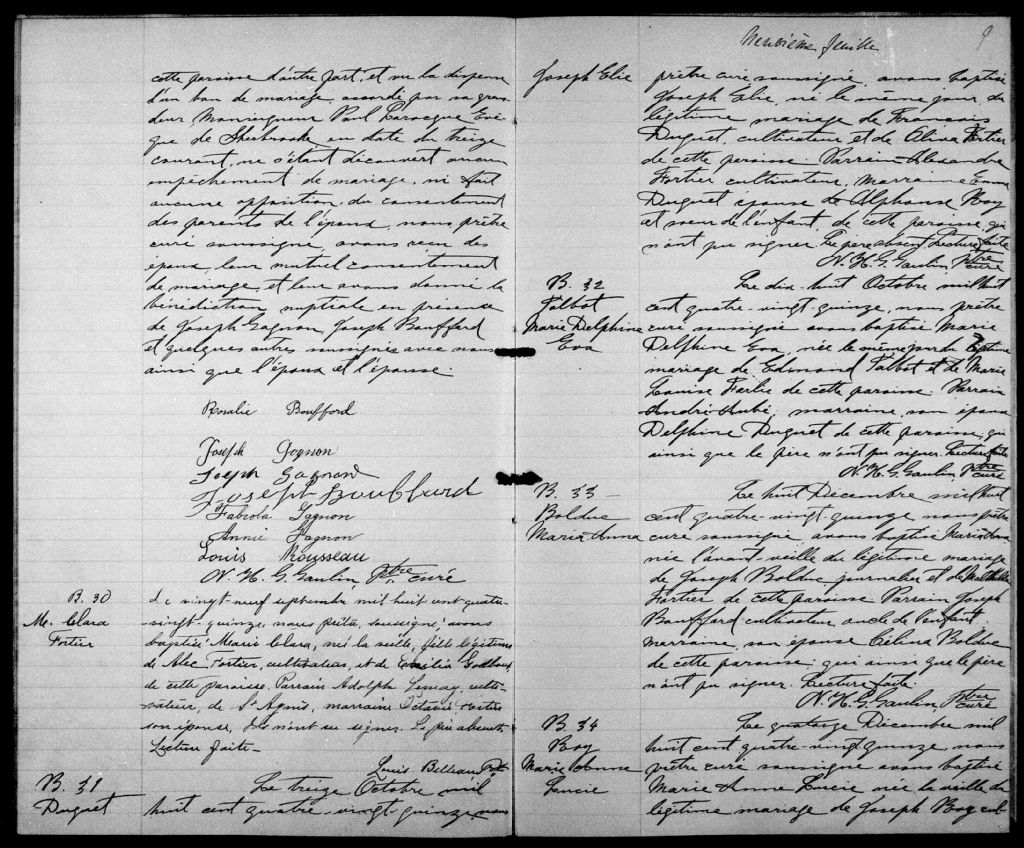 cette paroisse d'autre part, et vu la dispense
d'un ban de mariage, accordé par sa gran-
deur Monseigneur Paul Larocque Evê-
que de Sherbrooke en date du treize
courant, ne s'étant découvert aucun
empêchement de mariage, ni fait
aucune opposition, du consentement
des parents de l'époux, nous prêtre
curé soussigné, avons reçu des
époux, leur mutuel consentement
de mariage, et leur avons donné la
bénédiction nuptiale en présence
de Joseph Gagnon, Joseph Boufford
et quelques autres soussignés avec nous
ainsi que l'époux et l'épouse.
Rosalie Boufford
Joseph Gagnon
Joseph Gagnon
Joseph Bouffard
Fabiola Gagnon
Annie Gagnon
Louis Rousseau
N. H. G. Gaulin Ptre curé
B. 30
Me. Clara
Fortier
Le vingt-neuf septembre mil huit cent quatre-
vingt-quinze, nous prêtre, soussigné avons
baptisé Marie Clara, née la veille, fille légitime
de Alec Fortier, cultivateur, et de Godbout,
de cette paroisse. Parrain Adolph Lemay, culti-
vateur, de St Agnès, marraine Octavie Fortier
son épouse, Ils n'ont su signer. Le père absent.
Lecture faite-
Louis Billeau Ptre
B. 31
Duguet
Le treize Octobre mil
huit cent quatre-vingt-quinze, nous
Neuvième feuille
9
Joseph Elie
prêtre curé soussigné, avons baptisé
Joseph Elie, né le même jour du
légitime mariage de Francois
Duguet, cultivateur et de Olina Fortier
de cette paroisse. Parrain Alexandre
Fortier cultivateur, Marraine Emma
Duguet épouse de Alphonse Roy
et soeur de l'enfant, de cette paroisse, qui
n'ont pu signer Le père absent Lecture faite
N. H. G. Gaulin Ptre curé
B. 32
Talbot
Marie Delphine
Eva
Le dix-huit Octobre mil huit
cent quatre-vingt quinze, nous prêtre
curé soussigné avons baptisé Marie
Delphine Eva, née le même jour du légitime
mariage de Edmond Talbot et de Marie
Louise de cette paroisse. Parrain
André Aubé, marraine, son épouse
Delphine Duguet de cette paroisse, qui
ainsi que le père n'ont pu signer. Lecture faite
N. H. G. Gaulin, Ptre curé
B. 33
Bolduc
Marie Anna
Le huit Décembre mil huit
cent quatre-vingt-quinze nous prêtre
curé soussigné, avons baptisé Marie Anna
née l'avant veille du légitime mariage
de Joseph Bolduc journalier et de Mathilde
Fortier de cette paroisse Parrain Joseph
Boufford cultivateur, oncle de l'enfant
marraine, son épouse Célina Bolduc
de cette paroisse, qui ainsi que le père
n'ont pu signer. Lecture faite.
N. H. G. Gaulin, Ptre curé
B. 34
Roy
Marie Anne
Lucie
Le quatorze Décembre mil
huit cent quatre-vingt quinze, nous
prêtre curé soussigné avons baptisé
Marie Anne Lucie née la veille du
légitime mariage de Joseph Roy cul-